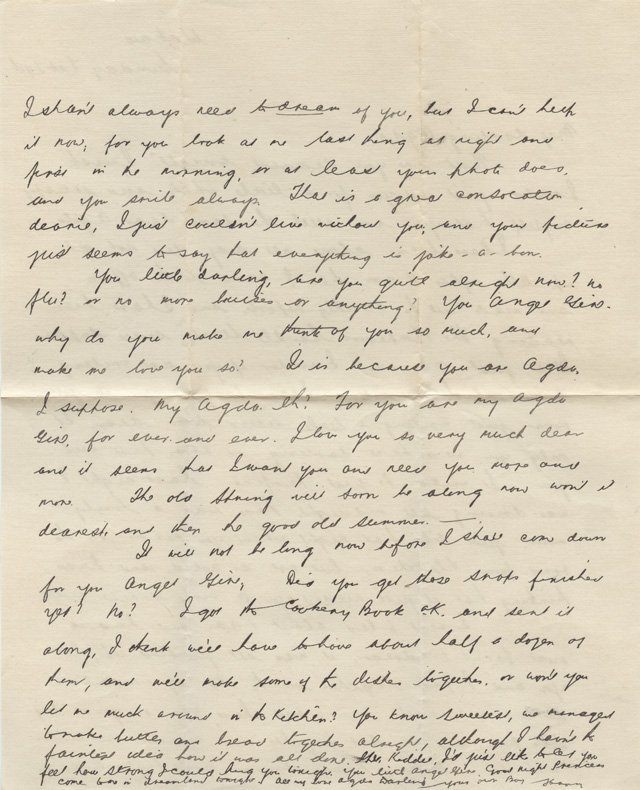 I shan't always need to dream of you, but I can't help
it now, for you look at me last thing at night and
first in the morning, or at least your photo does,
and you smile always. That is a great consolation
dearie, I just couldn't live without you, and your picture
just seems to say that everything is joke-a-bon.
You little darling, are you quite alright now? no
flu? or no more bruises or anything? You Angel Girl.
why do you make me think of you so much, and
make me love you so? It is because you are Agda.
I suppose. My Agda. Eh? For you are my Agda
Girl, for ever and ever. I love you so very much dear
and it seems that I want you and need you more and
more. The old Spring will soon be along now won't it
dearest, and then the good old summer. —
It will not be long now before I shall come down
for you Angel Girl, Did you get those snaps finished
yet? No? I got the Cookery Book O.K. and sent it
along, I think we'll have to have about half a dozen of
them, and we'll make some of the dishes together. or won't you
let me muck around in the Kitchen? You know sweetest, we managed
to make butter and bread together alright, although I haven't the
faintest idea how it was all done. Kiddie, I'd just like to let you
feel how strong I could hug you tonight, you little angel Girl. Good night Princess
come too in dreamland tonight. all my love Agda Darling your own Boy Harry